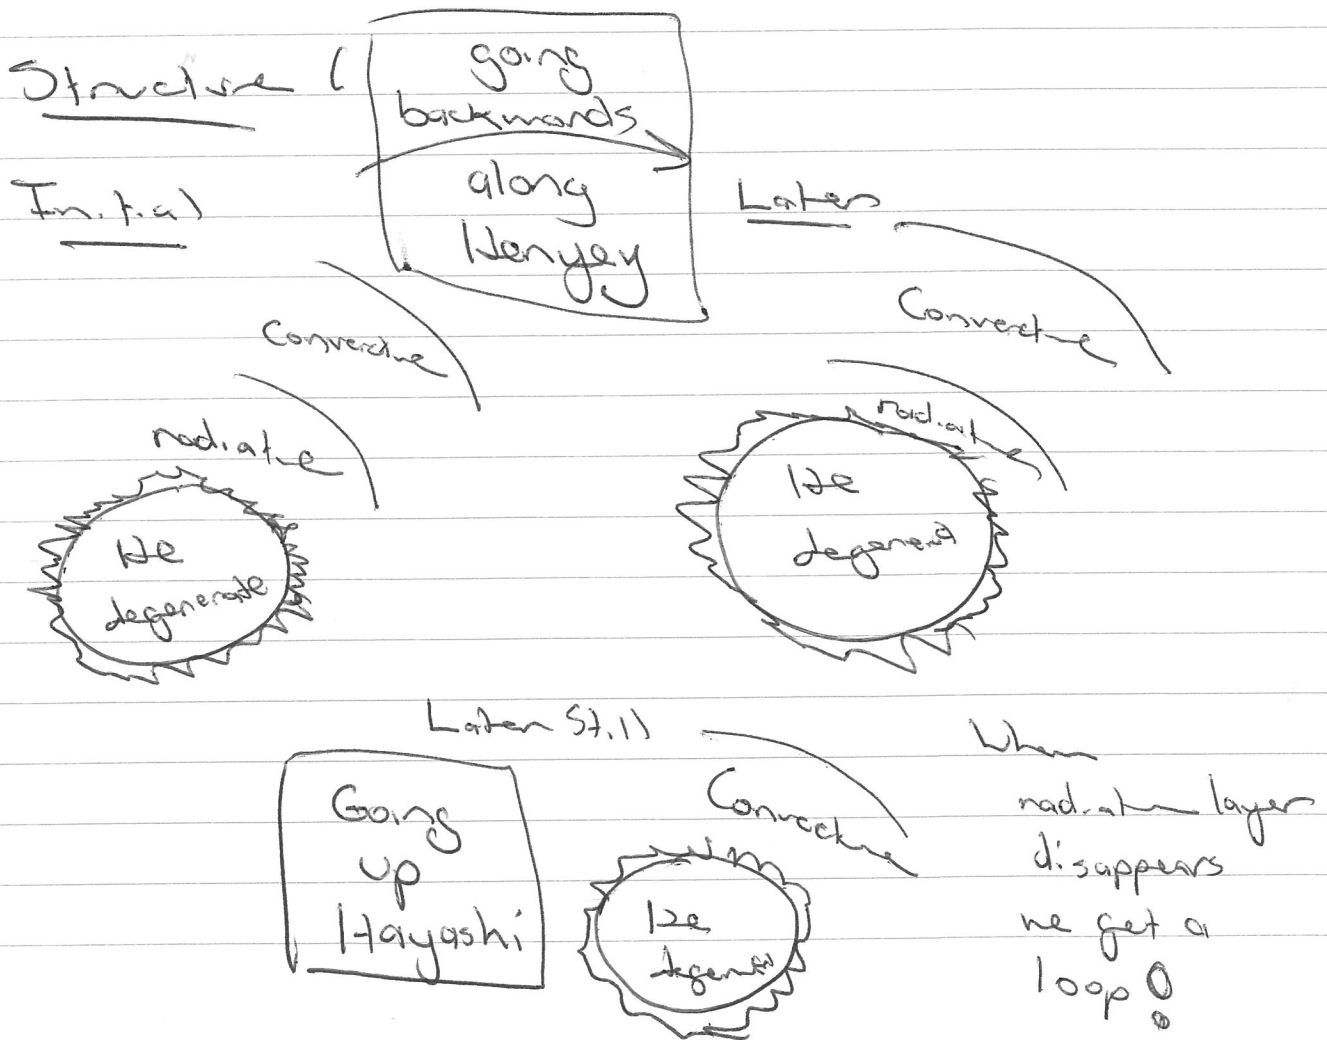 Structure (
going
backwards
along
Henyey
Initial
Later
Convective
radiative
He
degenerate
Convective
radiative
He
degenerat
Later Still
Going
up
Hayashi
Convective
He
When
radiative layer
disappears
we get a
loop!